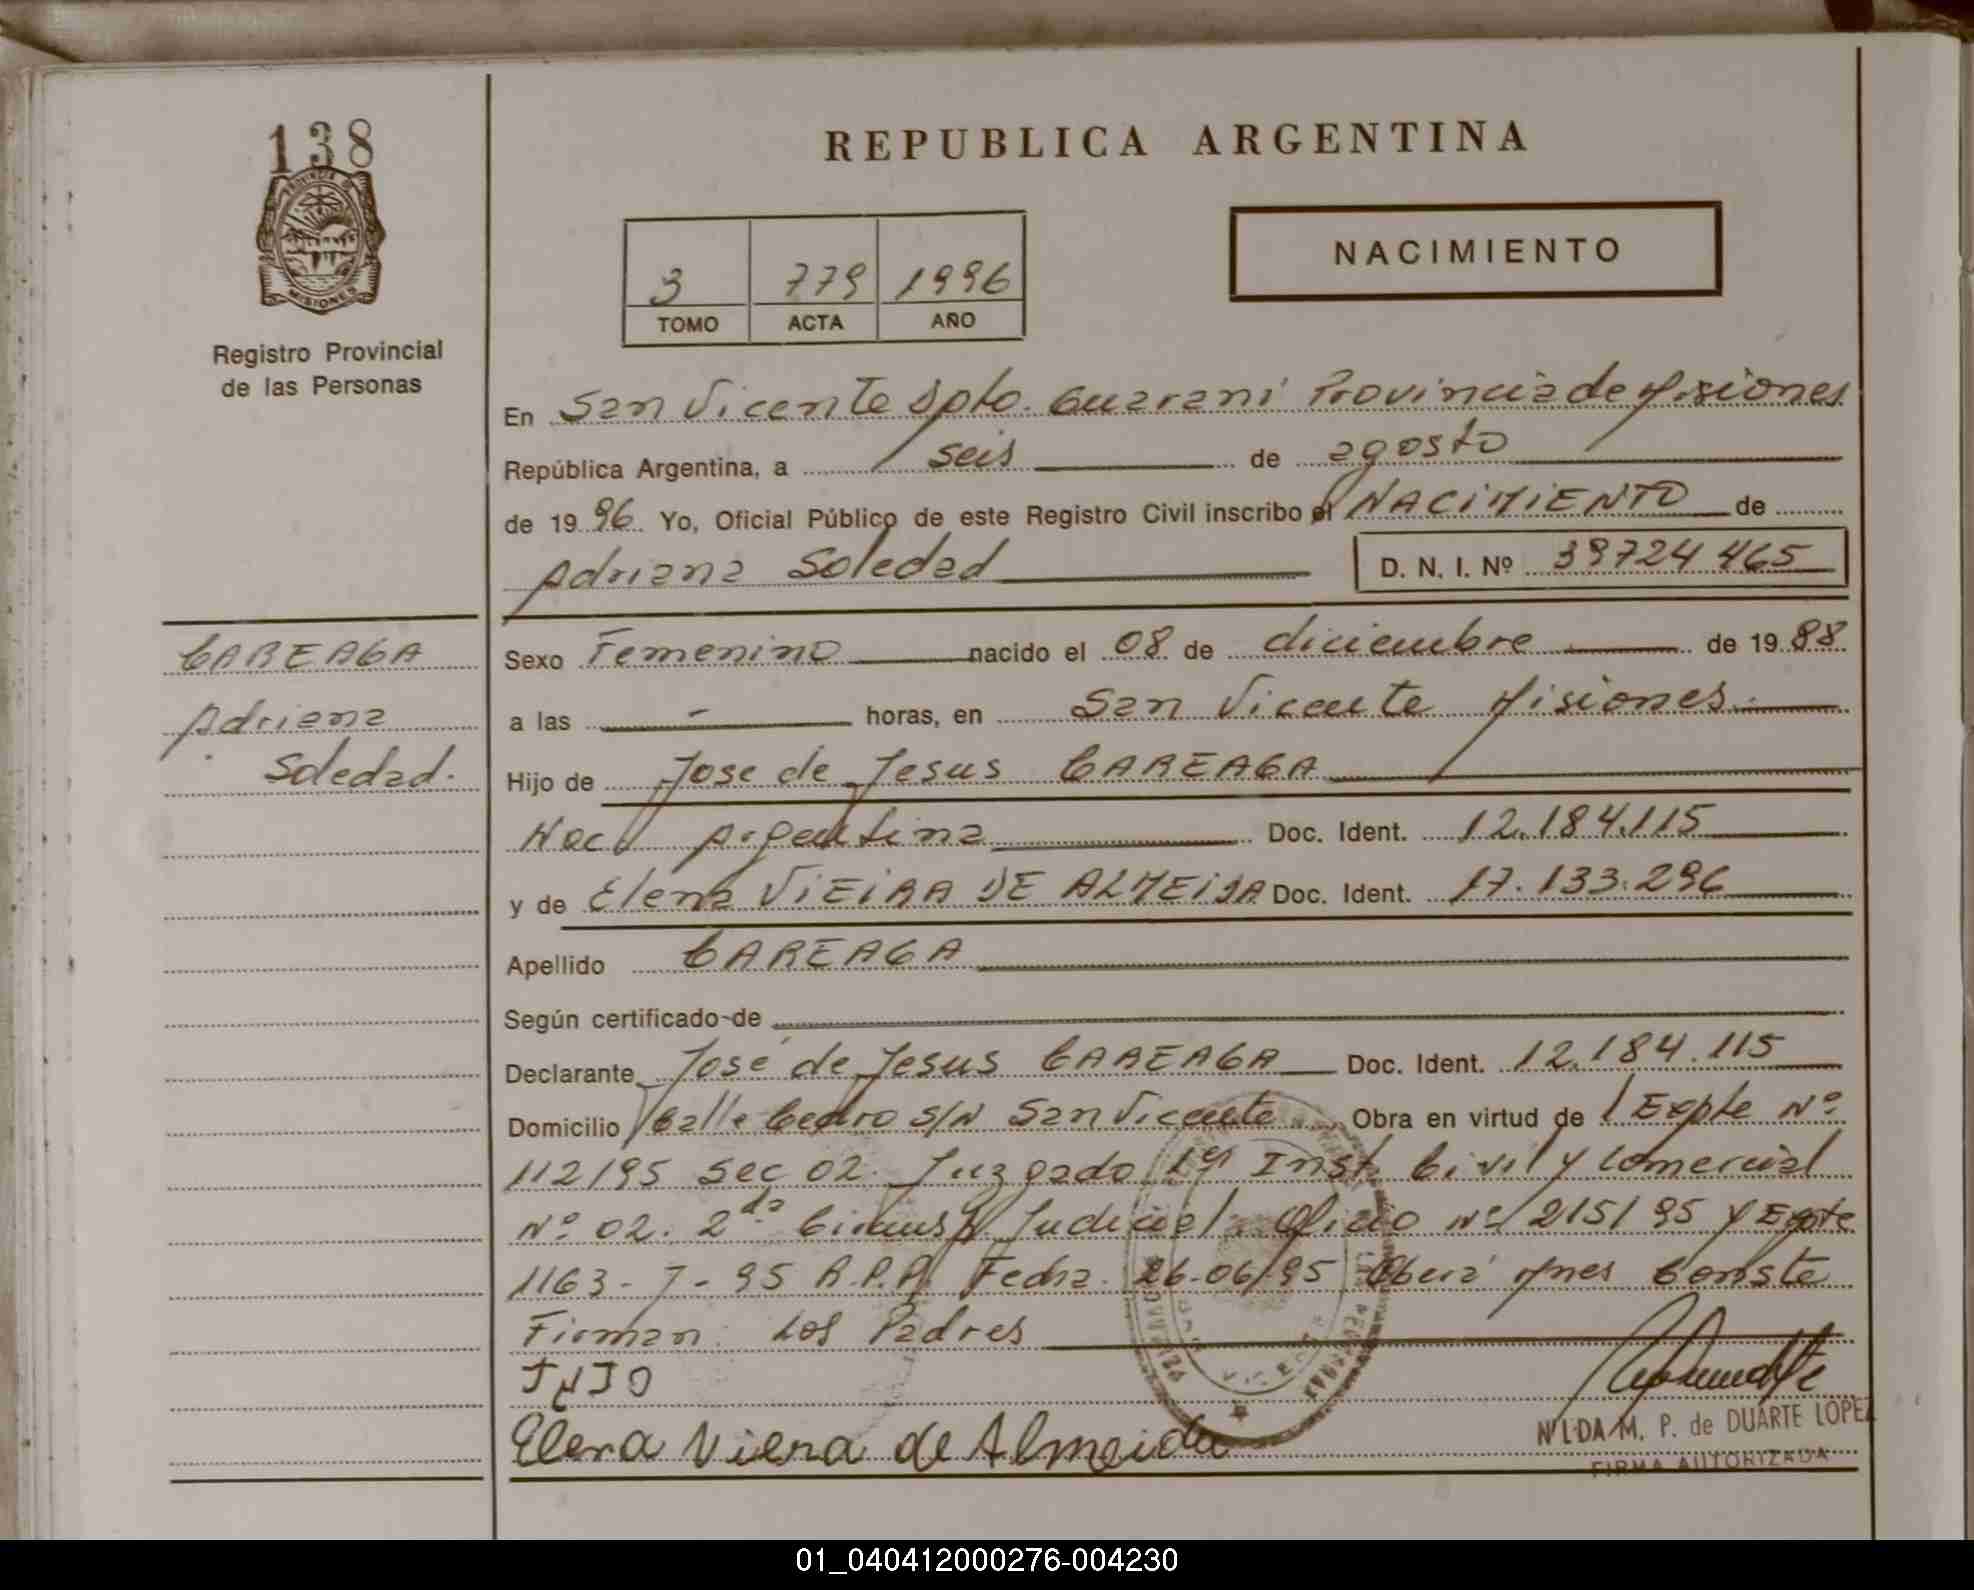 138
PROVINCIA DE
MISIONES
Registro Provincial
de las Personas
REPUBLICA ARGENTINA
3 779 1996
TOMO ACTA AÑO
NACIMIENTO
En San Vicente Dpto. Guarani Provincia de Misiones
República Argentina, a seis de agosto
de 1996 Yo, Oficial Público de este Registro Civil inscribo el NACIMIENTO de
Adriana Soledad D. N. I. Nº 39724465
CAREAGA
Adriana
Soledad.
Sexo Femenino nacido el 08 de diciembre de 1988
a las - horas, en San Vicente Misiones.
Hijo de Jose de Jesus CAREAGA
Nac Argentina Doc. Ident. 12.184.115
y de Elena VIEIRA DE ALMEIDA Doc. Ident. 17.133.296
Apellido CAREAGA
Según certificado de
Declarante José de Jesus CAREAGA Doc. Ident. 12.184.115
Domicilio Calle Cedro S/N San Vicente Obra en virtud de Expte Nº
112/95 Sec 02. Juzgado 1er Inst Civil y Comercial
Nº 02. 2da Circunsp. Judicial. Oficio Nº 215/95 y Expte
1163-7-95 R.P.P. Fecha. 26-06-95 Oberá Mnes Conste
Firman: Los Padres
Elena Viera de Almeida
NILDA M. P. de DUARTE LOPEZ
FIRMA AUTORIZADA
01_040412000276-004230